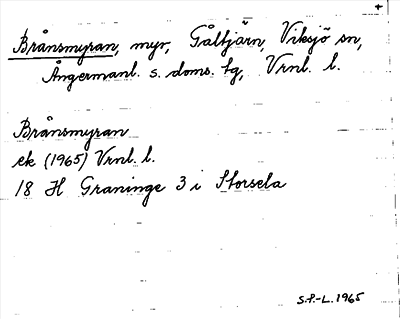 Brånsmyran, myr, Gåltjärn, Viksjö sn,
Ångermanl. s. doms. tg, Vrnl. l.
Brånsmyran
ek (1965) Vrnl. l.
18 H Graninge 3 i Storsela
S.P.-L. 1965